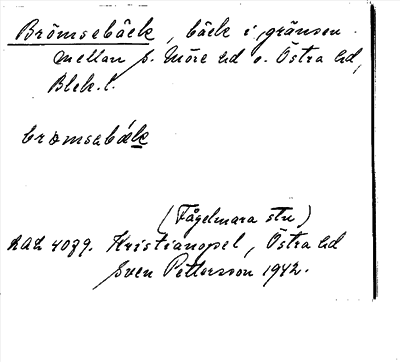 Brömsebäck, bäck i gränsen
mellan s. Möre hd o. Östra hd,
Blek. l.
bromsabäk
(Fågelmara stn)
Kristianopel, Östra hd
Sven Pettersson 1942.